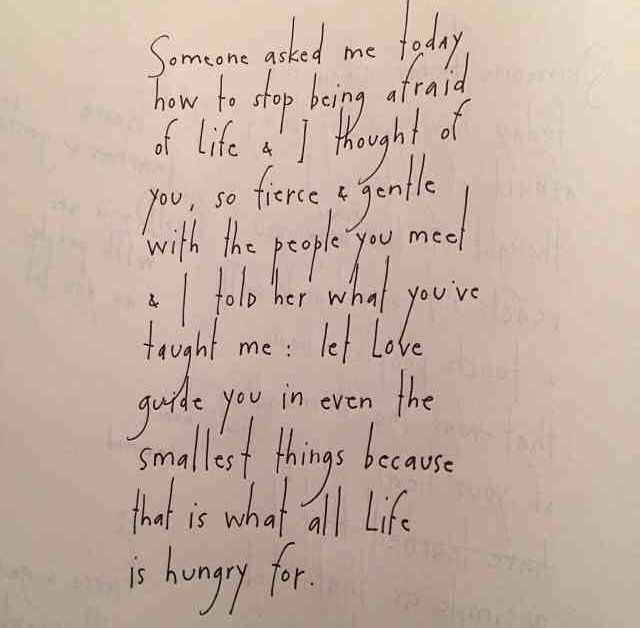 Someone asked me today
how to stop being afraid
of Life & I thought of
you, so fierce & gentle
with the people you meet
& I told her what you've
taught me: let Love
guide you in even the
smallest things because
that is what all Life
is hungry for.